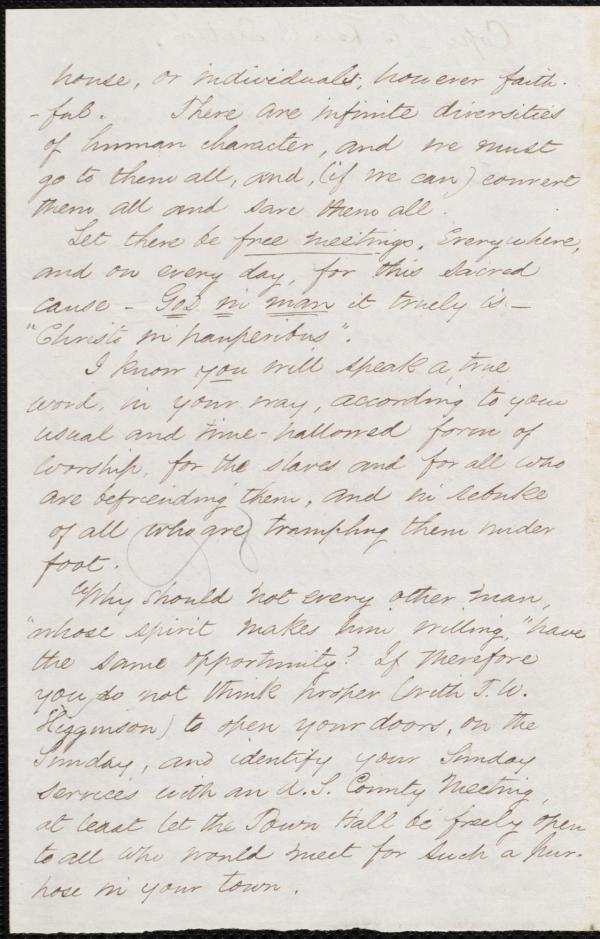 house, or individuals, however faith-
-ful. There are infinite diversities
of human character, and we must
go to them all, and, (if we can) convert
them all and save them all.
Let there be free meetings, everywhere,
and on every day, for this sacred
cause - God in man it truely is -
"Christi in pauperibus".
I know you will speak a true
word, in your way, according to your
usual and time-hallowed form of
worship, for the slaves and for all who
are befriending them, and in rebuke
of all who are trampling them under
foot.
"Why should not every other man,
"whose spirit makes him willing," have
the same opportunity? If therefore
you do not think proper (with T. W.
Higginson) to open your doors, on the
Sunday, and identify your Sunday
services with an A. S. County Meeting,
at least let the Town Hall be freely open
to all who would meet for such a pur-
pose in your town.